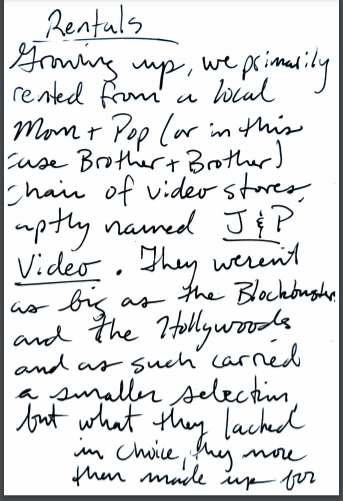 Rentals
Growing up, we primarily
rented from a local
Mom + Pop (or in this
case Brother + Brother)
chain of video stores,
aptly named J & P
Video. They weren't
as big as the Blockbusters
and the Hollywoods
and as such carried
a smaller selection,
but what they lacked
in choice, they more
then made up for